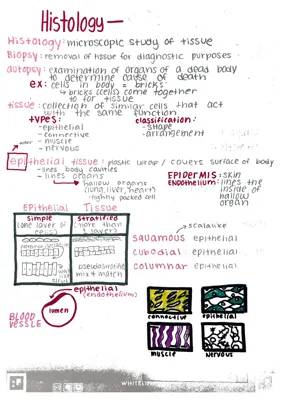 Histology—
Histology: microscopic study of tissue
Biopsy: removal of tissue for diagnostic purposes
autopsy: examination of organs of a dead body
to determine cause of death
ex: cells in body = bricks
↳ bricks (cells) come together
to for tissue
tissue: collection of similar cells that act
with the same function
types:
classification:
-epithelial
-shape
-connective
-arrangement
-muscle
-nervous
epithelial tissue: plastic wrap / covers surface of body
-lines body cavities
-lines organs
EPIDERMIS: skin
↳ hallow organs
(lung, liver, heart)
ENDOTHELIUM: lines the
inside of
hallow
organ
-tightly packed cell
Epithelial Tissue
simple
(one layer of
cells)
stratified
(more than
1 layer)
pseudostratified
mix + match
↗ scalelike
squamous epithelial
cubodial epithelial
columnar epithelial
epithelial
(endothelium)
BLOOD
VESSLE
lumen
connective
epithelial
muscle
nervous